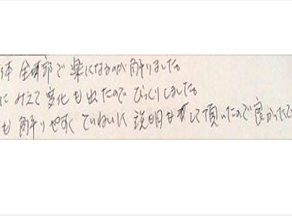 体全部で楽になるのが解りました。
にみえて変化も出たのでびっくりしました。
も解りやすくていねいに説明をして頂いたので良かったで